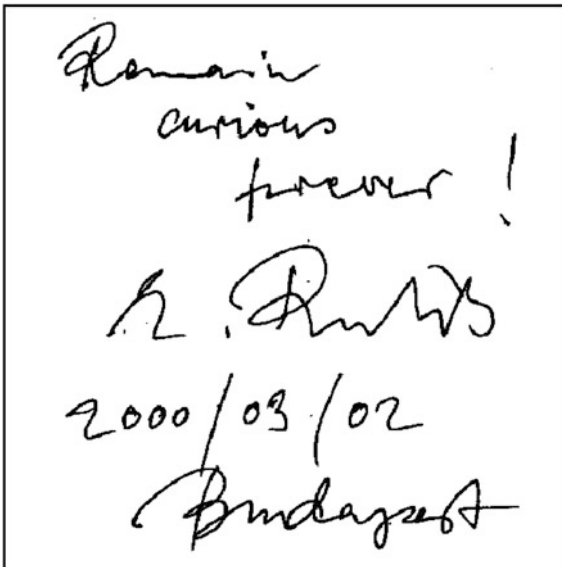 Remain
curious
forever !
2000/03/02
Budapest